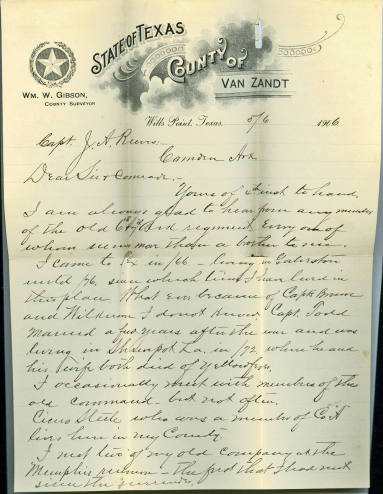 STATE OF TEXAS
COUNTY OF
VAN ZANDT
WM. W. GIBSON,
COUNTY SURVEYOR
Wills Point, Texas, 5/6 1906
Capt. J. A.
Camden Ark
Dear Sir & Comrade,-
Yours of inst to hand.
I am always glad to hear from any member
of the old regiment, Every one of
whom seems more than a brother to me.
I came to Tx in /66 - living in Galveston
until /76. since which time I have lived in
this place. What ever became of Capts
and I do not know, Capt. Todd
married a few years after the war and was
living in Shreveport La. in /72, where he and
his wife both died of yellow fever.
I occasionally meet with members of the
old command - but not often.
Cicero Steele, who was a member of Co A
lives here in my County.
I met two of my old company at the
Memphis reunion - the first that I had met
since the surrender,